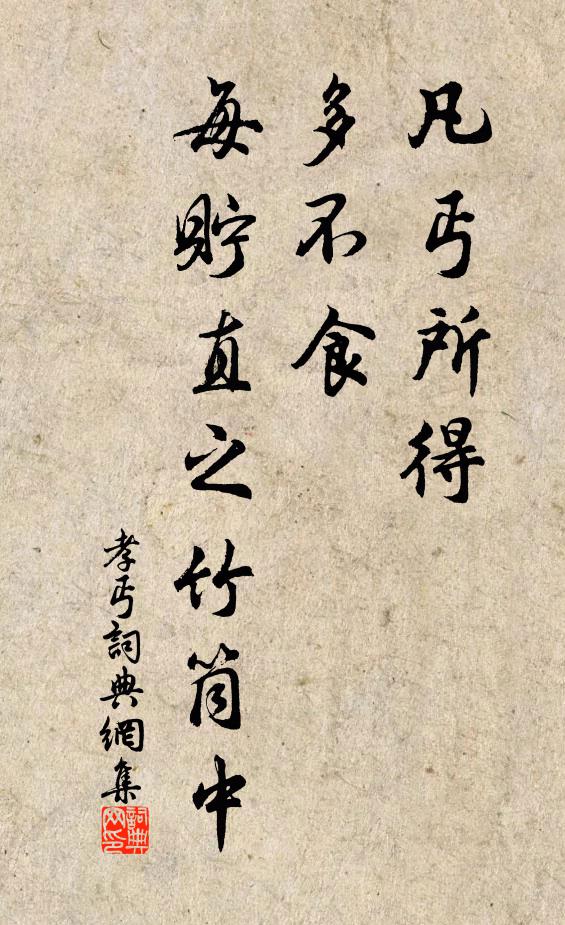 凡丐所得
多不食
每貯直之竹筒中
孝丐詞典網集
詞典
网印